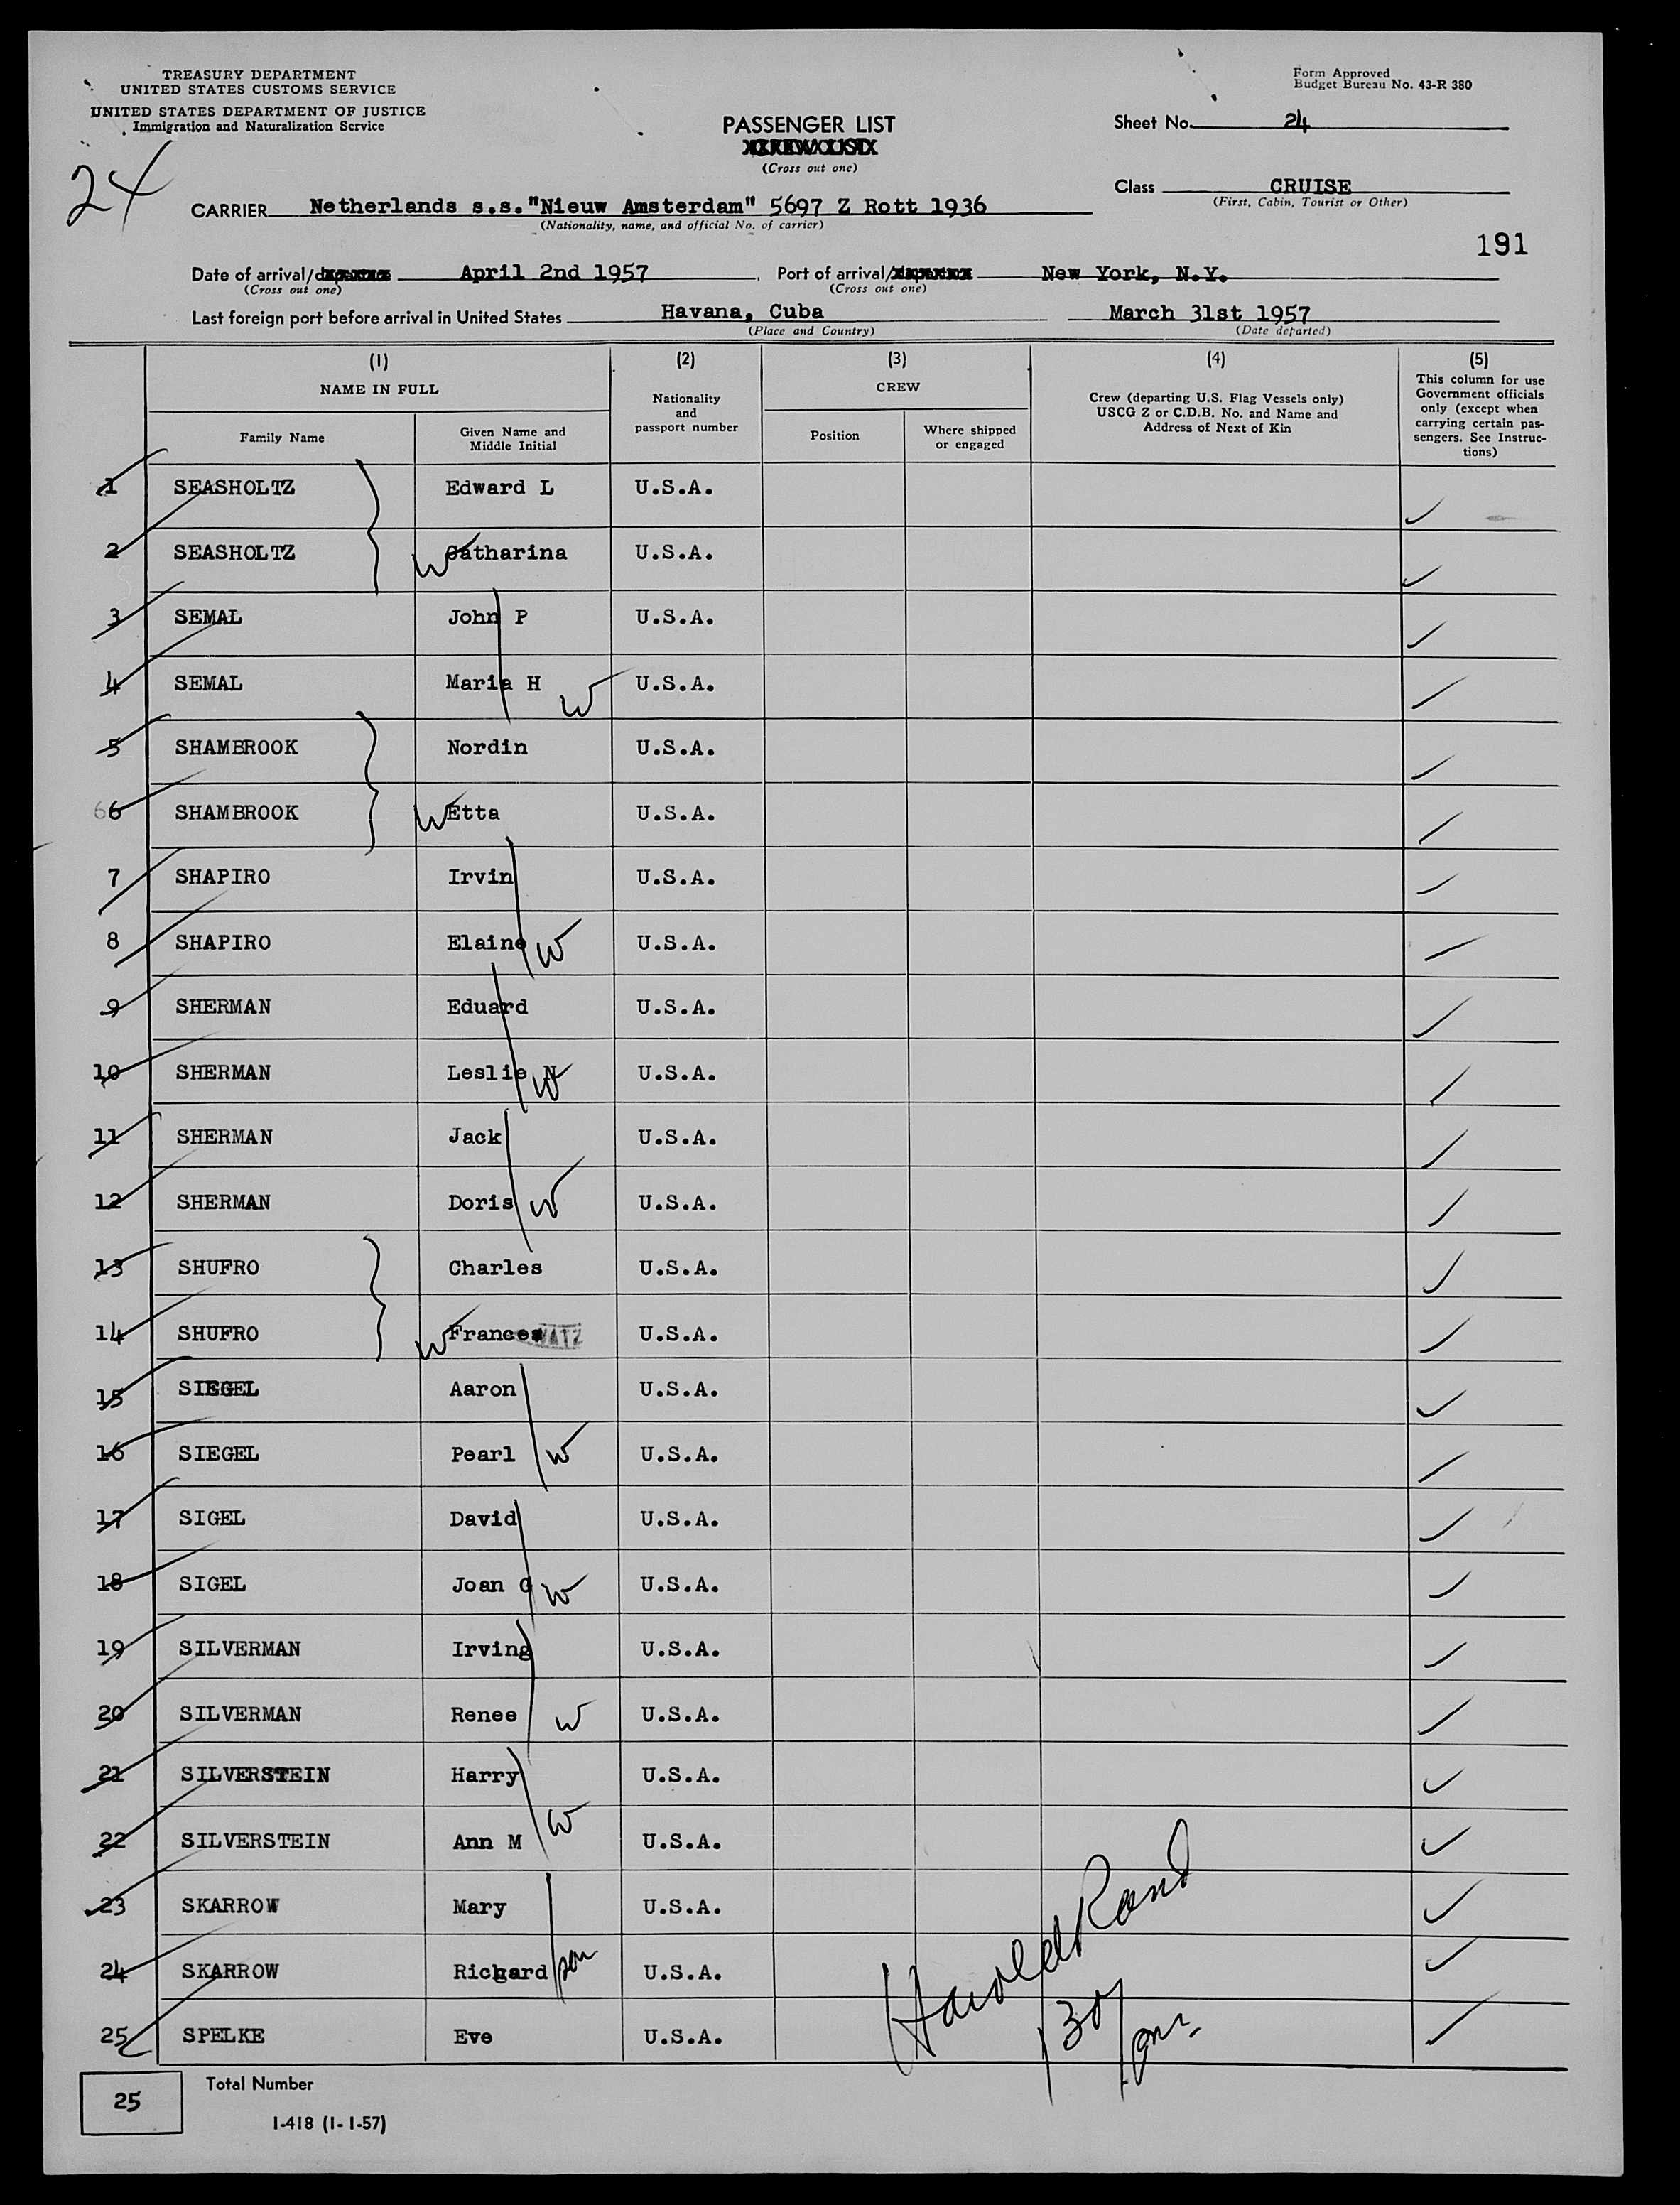 TREASURY DEPARTMENT
UNITED STATES CUSTOMS SERVICE
UNITED STATES DEPARTMENT OF JUSTICE
Immigration and Naturalization Service
Form Approved
Budget Bureau No. 43-R 380
24
PASSENGER LIST
(Cross out one)
Sheet No. 24
Class CRUISE
(First, Cabin, Tourist or Other)
CARRIER Netherlands s.s."Nieuw Amsterdam" 5697 Z Rott 1936
(Nationality, name, and official No. of carrier)
191
Date of arrival/ April 2nd 1957 Port of arrival/ New York, N.Y.
(Cross out one) (Cross out one)
Last foreign port before arrival in United States Havana, Cuba March 31st 1957
(Place and Country) (Date departed)
(1) (2) (3) (4) (5)
NAME IN FULL
Family Name
Given Name and
Middle Initial
Nationality
and
passport number
CREW
Position
Where shipped
or engaged
Crew (departing U.S. Flag Vessels only)
USCG Z or C.D.B. No. and Name and
Address of Next of Kin
This column for use
Government officials
only (except when
carrying certain pas-
sengers. See Instruc-
tions)
1 SEASHOLTZ Edward L U.S.A.
2 SEASHOLTZ W Catharina U.S.A.
3 SEMAL John P U.S.A.
4 SEMAL Maria H W U.S.A.
5 SHAMBROOK Nordin U.S.A.
6 6 SHAMBROOK W Etta U.S.A.
7 SHAPIRO Irvin U.S.A.
8 SHAPIRO Elaine W U.S.A.
9 SHERMAN Eduard U.S.A.
10 SHERMAN Leslie N W U.S.A.
11 SHERMAN Jack U.S.A.
12 SHERMAN Doris W U.S.A.
13 SHUFRO Charles U.S.A.
14 SHUFRO W Frances U.S.A.
15 SIEGEL Aaron U.S.A.
16 SIEGEL Pearl W U.S.A.
17 SIGEL David U.S.A.
18 SIGEL Joan G W U.S.A.
19 SILVERMAN Irving U.S.A.
20 SILVERMAN Renee W U.S.A.
21 SILVERSTEIN Harry U.S.A.
22 SILVERSTEIN Ann M W U.S.A.
23 SKARROW Mary U.S.A.
24 SKARROW Richard son U.S.A.
25 SPELKE Eve U.S.A.
Harold Rand
130 pm
25 Total Number
I-418 (1-1-57)